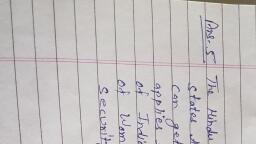 Ans. 5 The Hindu
States A
can get
applies
of India
of Wom
Securit